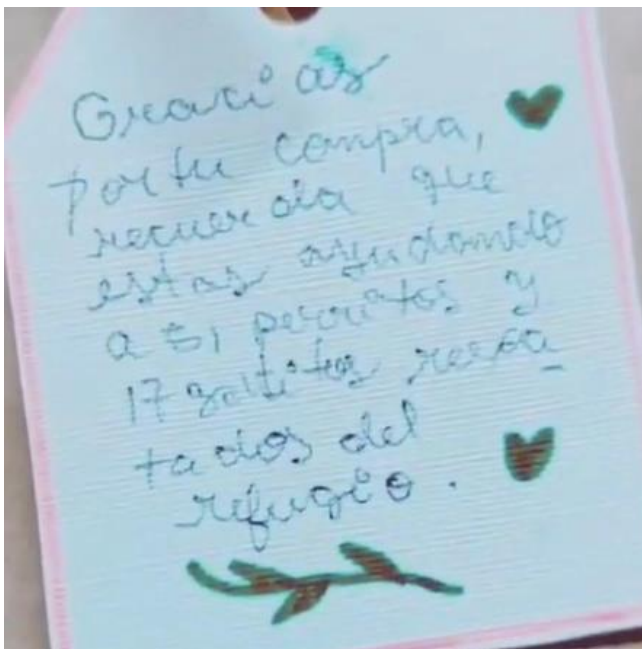 Gracias
por tu compra,
recuerda que
estas ayudando
a 51 perritos y
17 gatitos resca_
tados del
refugio.